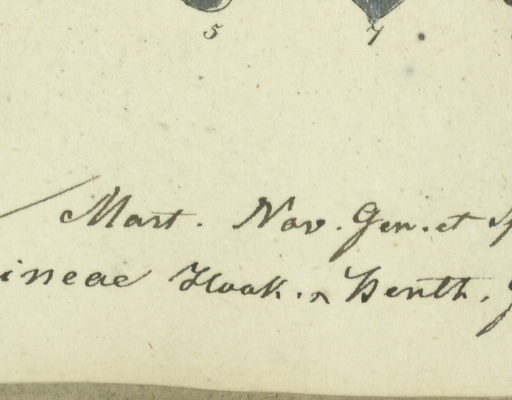 5 7
Mart. Nov. Gen. et
ineae Hook. & Benth.